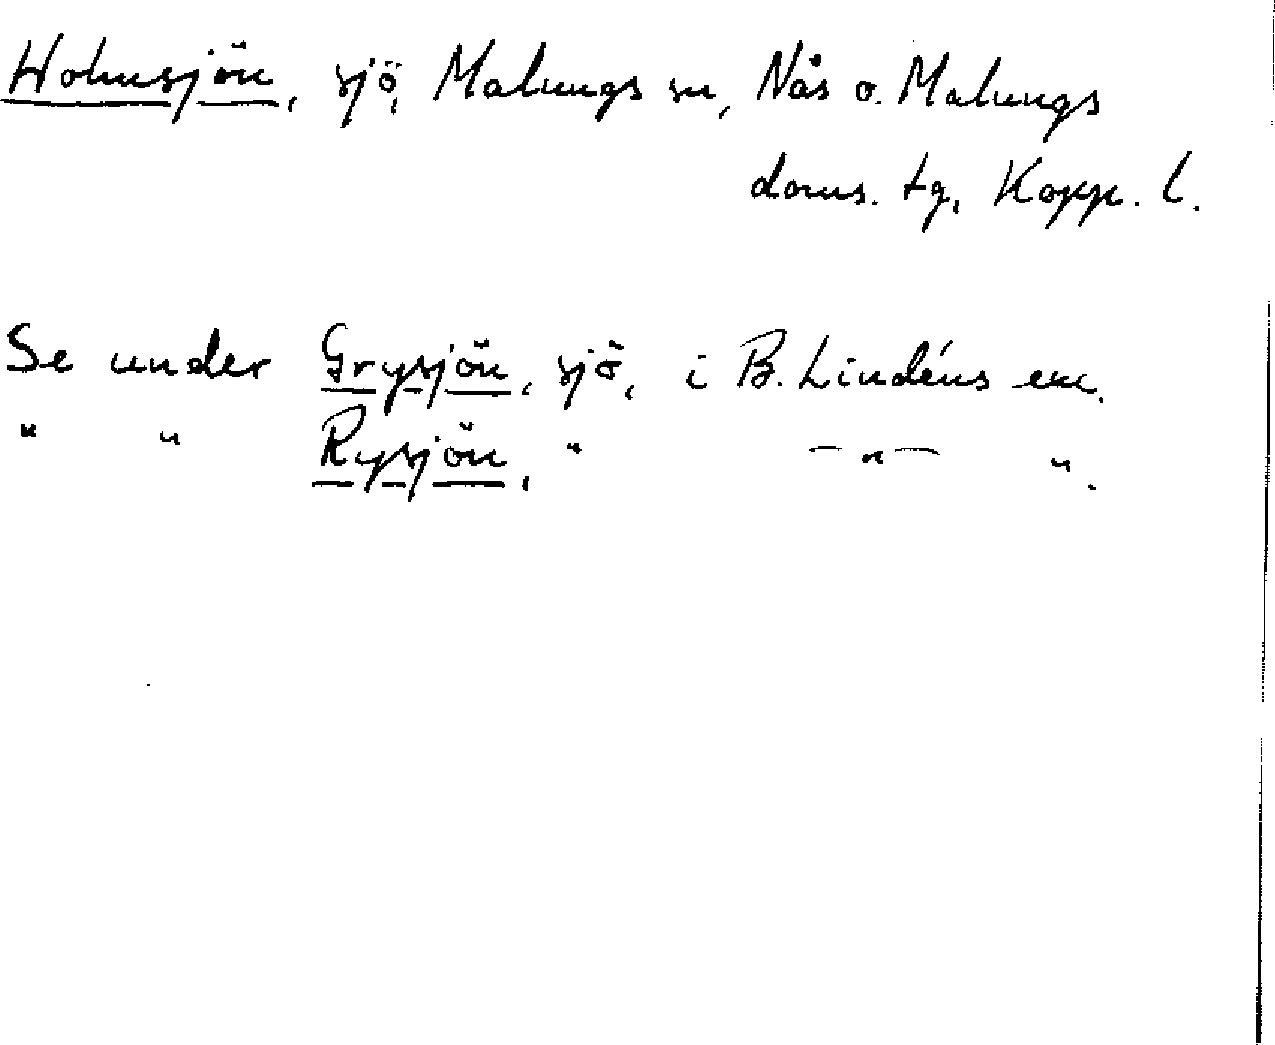 Holmsjön, sjö, Malungs sn, Nås o. Malungs
doms. tg, Kopp. l.
Se under Grysjön, sjö, i B. Lindéns ex.
" " Rysjön, " — " — ".